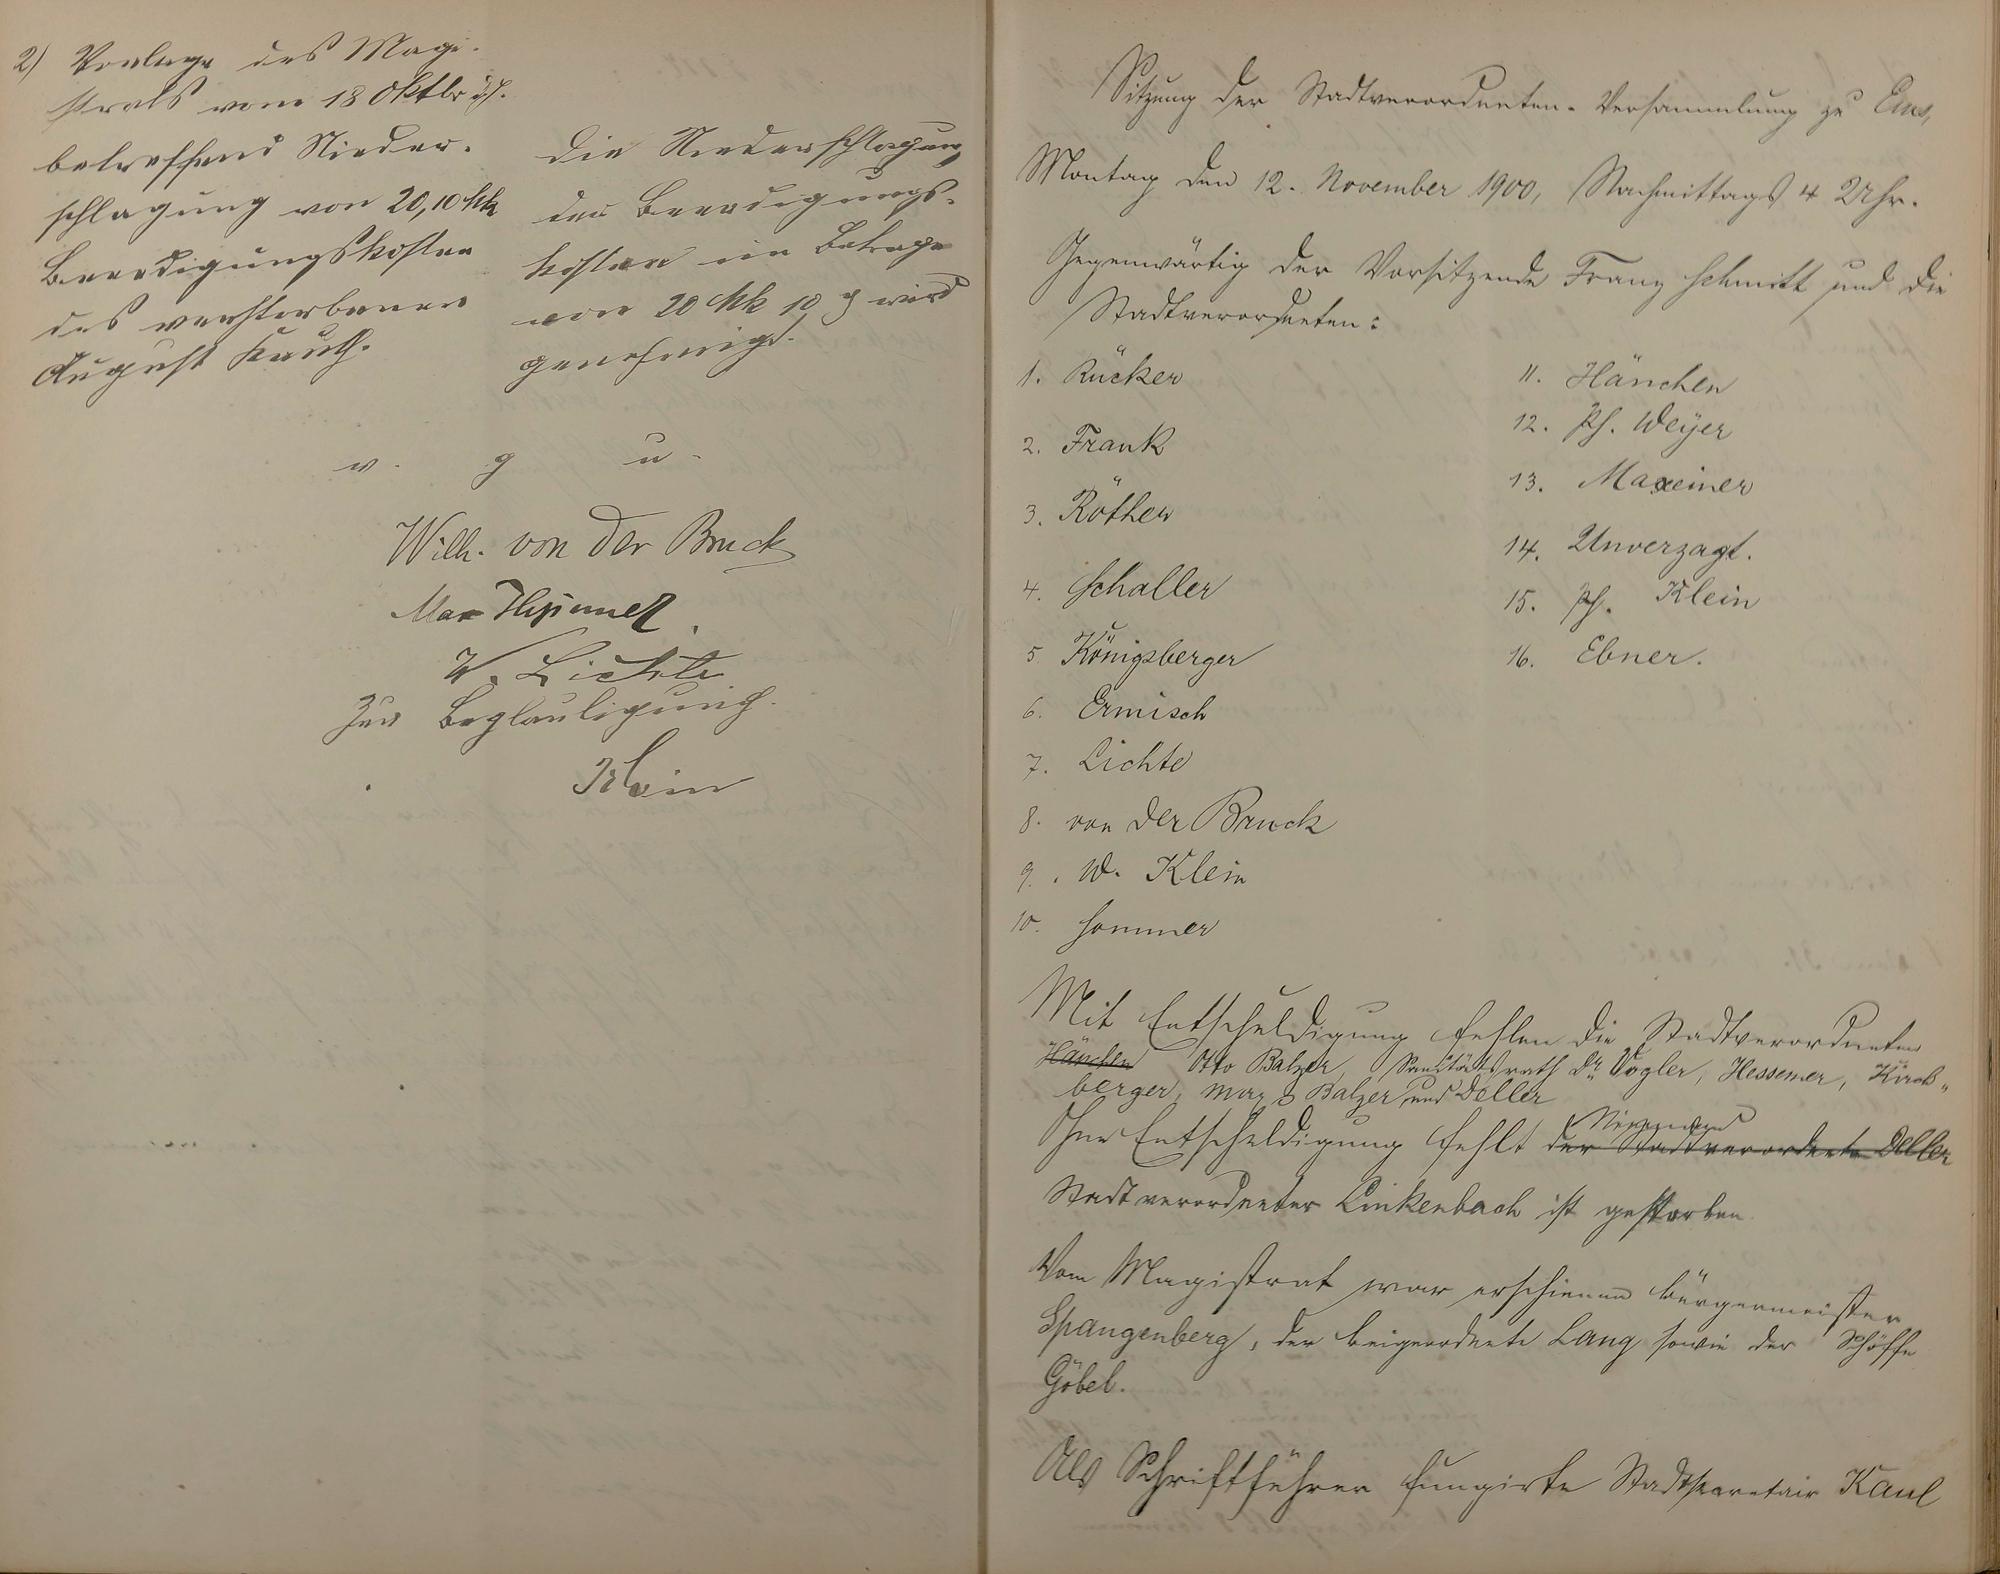 2) Vorlage des Magi-
strats vom 18 Oktbr d. J.
betreffend Nieder-
schlagung von 20,10 Mk
Beerdigungskosten
des verstorbenen
August Kauth.
Die Niederschlagung
der Beerdigungs-
kosten im Betrage
von 20 Mk 10 ₰ wird
genehmigt.
v. g. u.
Wilh. von der Bruck
Max
W. Lichte
Zur Beglaubigung.
Klein
Sitzung der Stadtverordneten-Versammlung zu Ems,
Montag den 12. November 1900, Nachmittags 4 Uhr.
Gegenwärtig der Vorsitzende Franz Schmitt und die
Stadtverordneten:
1. Rücker
2. Frank
3. Röther
4. Schaller
5. Königsberger
6. Ermisch
7. Lichte
8. von der Bruck
9. W. Klein
10. Sommer
11. Hänchen
12. Ph. Weyer
13. Maxeiner
14. Unverzagt.
15. Ph. Klein
16. Ebner.
Mit Entschuldigung fehlen die Stadtverordneten
Hänchen Otto Balzer, Sanitätsrath Dr. Vogler, Hessemer, Kirch-
berger, Max Balzer und Deller
Niemand
Ohne Entschuldigung fehlt der Stadtverordnete Deller
Stadtverordneter Linkenbach ist gestorben
Vom Magistrat war erschienen Bürgermeister
Spangenberg, der Beigeordnete Lang sowie der Schöffe
Göbel.
Als Schriftführer fungirte Stadtsecretair Kaul